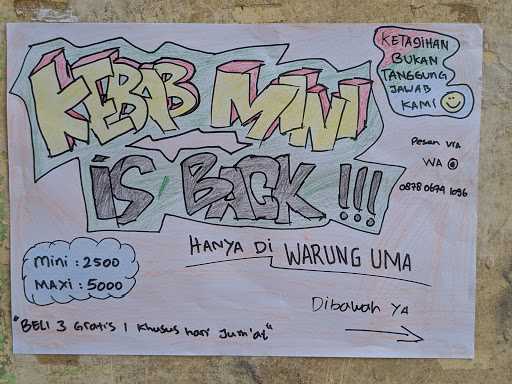 KEBAB MINI
IS BACK !!!
KETAGIHAN
BUKAN
TANGGUNG
JAWAB
KAMI
Pesan VIA
WA
0878 0674 1096
HANYA DI WARUNG UMA
mini : 2500
MAXI : 5000
Dibawah YA
"BELI 3 Gratis 1 Khusus hari Jum'at"